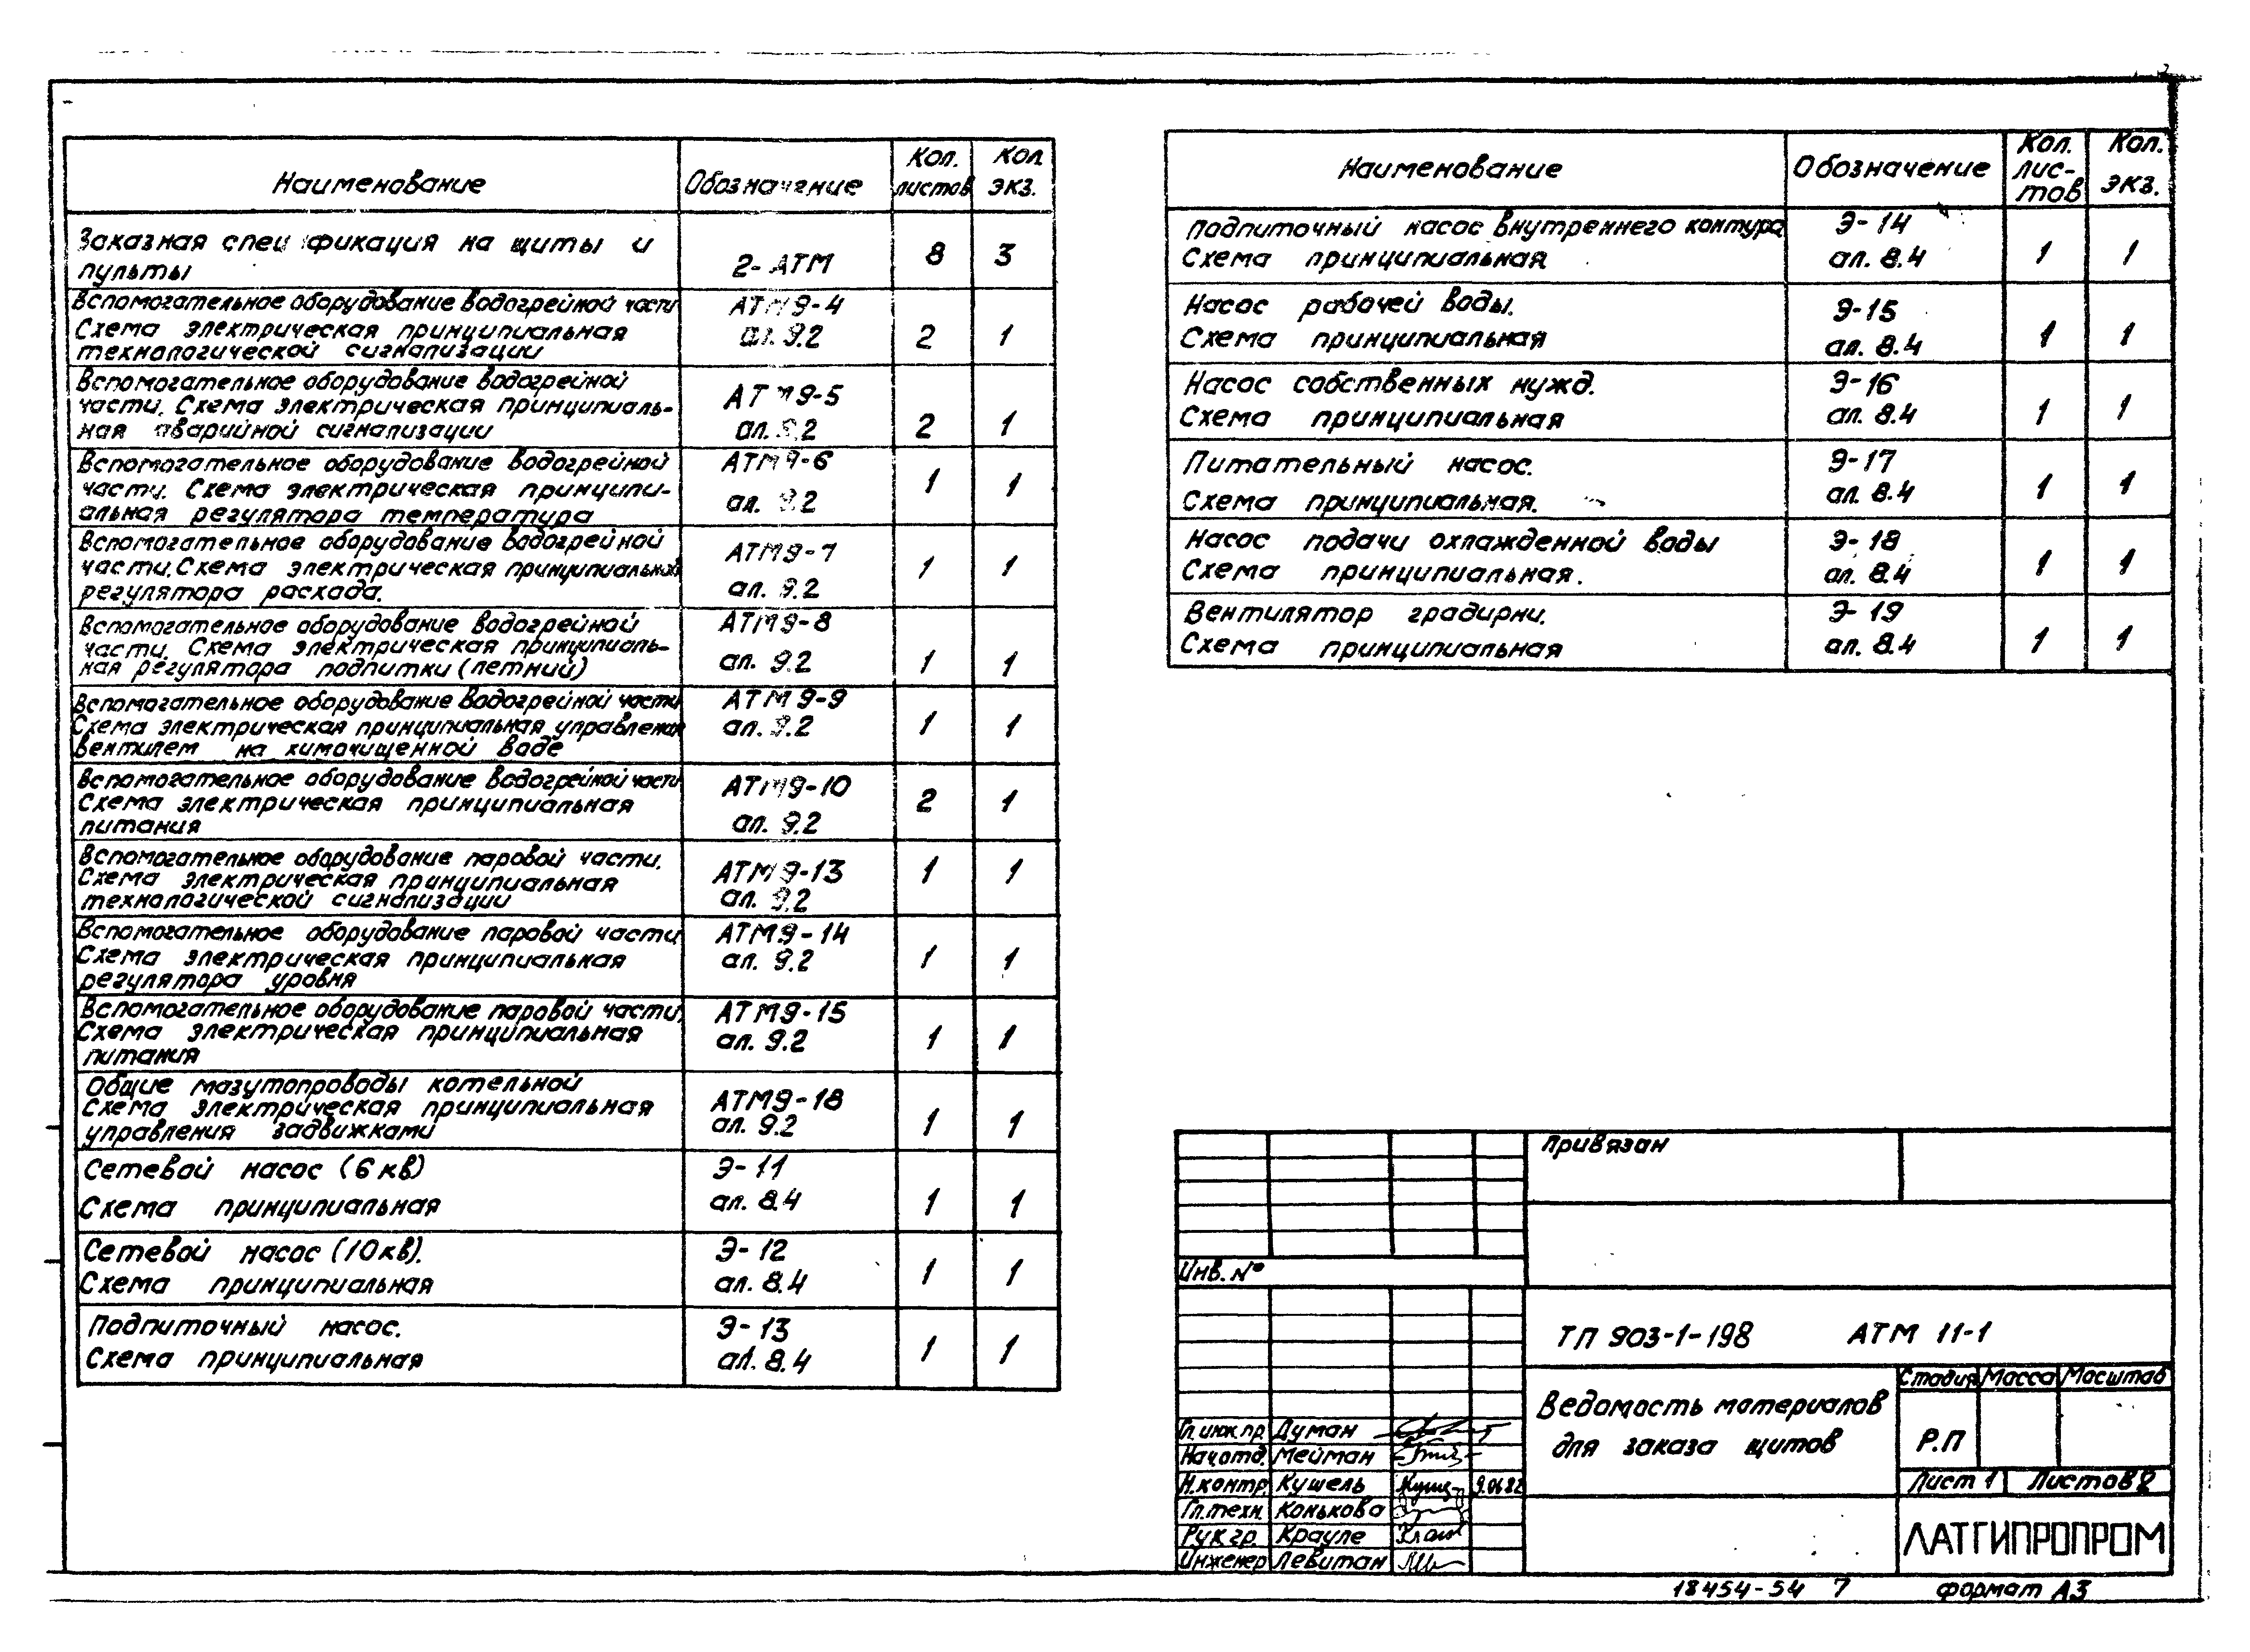 Наименование
Обозначение
Кол. листов
Кол. экз.
Заказная спецификация на щиты и
пульты
2-АТМ
8
3
Вспомогательное оборудование водогрейной части
Схема электрическая принципиальная
технологической сигнализации
АТМ9-4
ал. 9.2
2
1
Вспомогательное оборудование водогрейной
части. Схема электрическая принципиаль-
ная аварийной сигнализации
АТМ9-5
ал. 9.2
2
1
Вспомогательное оборудование водогрейной
части. Схема электрическая принципи-
альная регулятора температура
АТМ9-6
ал. 9.2
1
1
Вспомогательное оборудование водогрейной
части. Схема электрическая принципиальная
регулятора расхода.
АТМ9-7
ал. 9.2
1
1
Вспомогательное оборудование водогрейной
части. Схема электрическая принципиаль-
ная регулятора подпитки (летний)
АТМ9-8
ал. 9.2
1
1
Вспомогательное оборудование водогрейной части
Схема электрическая принципиальная управления
вентилем на химочищенной воде
АТМ9-9
ал. 9.2
1
1
Вспомогательное оборудование водогрейной части
Схема электрическая принципиальная
питания
АТМ9-10
ал. 9.2
2
1
Вспомогательное оборудование паровой части.
Схема электрическая принципиальная
технологической сигнализации
АТМ9-13
ал. 9.2
1
1
Вспомогательное оборудование паровой части
Схема электрическая принципиальная
регулятора уровня
АТМ9-14
ал. 9.2
1
1
Вспомогательное оборудование паровой части.
Схема электрическая принципиальная
питания
АТМ9-15
ал. 9.2
1
1
Общие мазутопроводы котельной
Схема электрическая принципиальная
управления задвижками
АТМ9-18
ал. 9.2
1
1
Сетевой насос (6 кв)
Схема принципиальная
Э-11
ал. 8.4
1
1
Сетевой насос (10 кв).
Схема принципиальная
Э-12
ал. 8.4
1
1
Подпиточный насос.
Схема принципиальная
Э-13
ал. 8.4
1
1
Наименование
Обозначение
Кол. лис-
тов
Кол. экз.
Подпиточный насос внутреннего контура
Схема принципиальная
Э-14
ал. 8.4
1
1
Насос рабочей воды.
Схема принципиальная
Э-15
ал. 8.4
1
1
Насос собственных нужд.
Схема принципиальная
Э-16
ал. 8.4
1
1
Питательный насос.
Схема принципиальная.
Э-17
ал. 8.4
1
1
Насос подачи охлажденной воды
Схема принципиальная.
Э-18
ал. 8.4
1
1
Вентилятор градирни.
Схема принципиальная
Э-19
ал. 8.4
1
1
Привязан
Инв. №
ТП 903-1-198 АТМ 11-1
Ведомость материалов
для заказа щитов
Стадия Масса Масштаб
Р.П
Лист 1 Листов 2
ЛАТГИПРОПРОМ
Гл. инж. пр. Думан
Нач. отд. Мейман
Н. контр. Кушель
Гл. техн. Конькова
Рук. гр. Крауле
Инженер Левитан
18454-54 7
формат А3